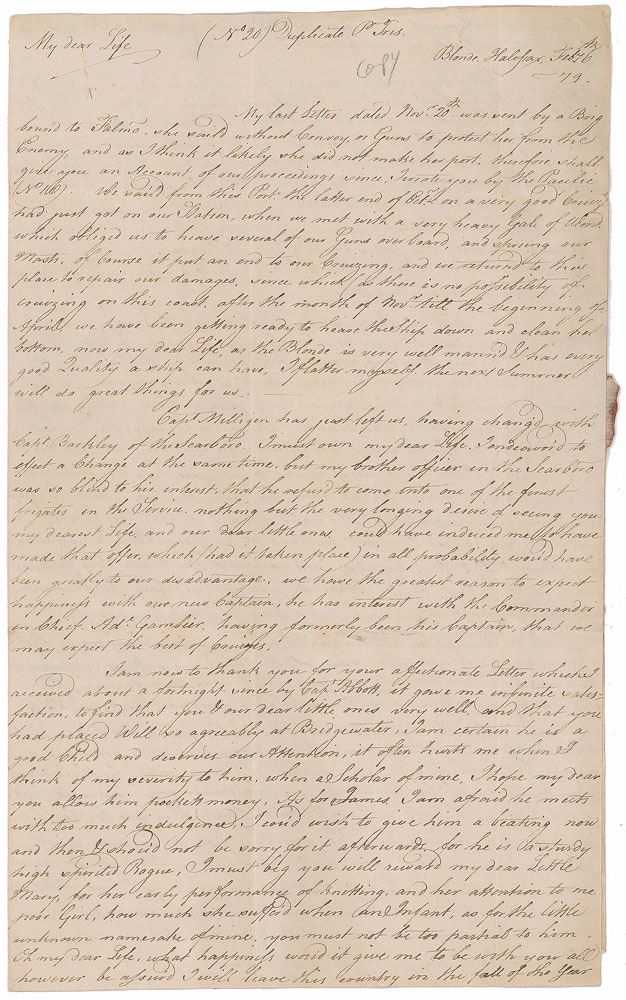 (No 20) Duplicate Pr Iris.
My dear Life
COPY
Blonde, Halefax, Feb 16th
79.
My last Letter dated Novr 20th was sent by a Brig
bound to Falmo, she saild without Convoy, or Guns to protect her from the
Enemy, and as I think it likely she did not make her port, therefore shall
give you an Account of our proceedings since I wrote you by the Pacific
(No 18). We saild from this Port the latter end of Octr on a very good Cruize
had just got on our Station, when we met with a very heavy Gale of Wind
which obliged us to heave several of our Guns overboard, and sprung our
Masts, of Course it put an end to our Cruizing, and we returnd to this
place to repair our damages, since which (as there is no possibility of
cruizing on this coast, after the month of Novr till the beginning of
April) we have been getting ready to heave the Ship down and clean her
bottom, now my dear Life, as the Blonde is very well mann'd & has every
good Quality a ship can have, I flatter myself the next Summer
will do great things for us.
Capt Milligen has just left us, having changd with
Capt Barkley of the Scarboro, I must own my dear Life, I endeavord to
effect a Change at the same time, but my brother officer in the Scarboro
was so blind to his interest, that he refusd to come into one of the finest
frigates in the Service. nothing but the very longing desire of seeing you
my dearest Life, and our dear little ones, could have induced me to have
made that offer, which (had it taken place) in all probability woud have
been greatly to our disadvantage, we have the greatest reason to expect
happiness with our new Captain, he has interest with the Commander
in Chief, Adl Gambier, having formerly been his Captain, that we
may expect the best of Cruizes.
I am now to thank you for your affectionate Letter which I
received about a fortnight since by Capt Abbott, it gave me infinite satis-
faction, to find that you & our dear little ones very well, and that you
had placed Will so agreeably at Bridgewater, I am certain he is a
good Child and deserves our Attention, it often hurts me when I
think of my severity to him, when a Scholar of mine, I hope my dear
you allow him pocket money. As for James, I am afraid he meets
with too much indulgence, I coud wish to give him a beating now
and then & should not be sorry for it afterwards, for he is a sturdy
high spirited Rogue, I must beg you will reward my dear Little
Mary, for her early performance of knitting, and her attention to me
poor Girl, how much she sufferd when an Infant, as for the little
unknown namesake of mine, you must not be too partial to him.
Oh my dear Life, what happiness woud it give me to be with you all
however be assurd I will leave this country in the fall of the Year